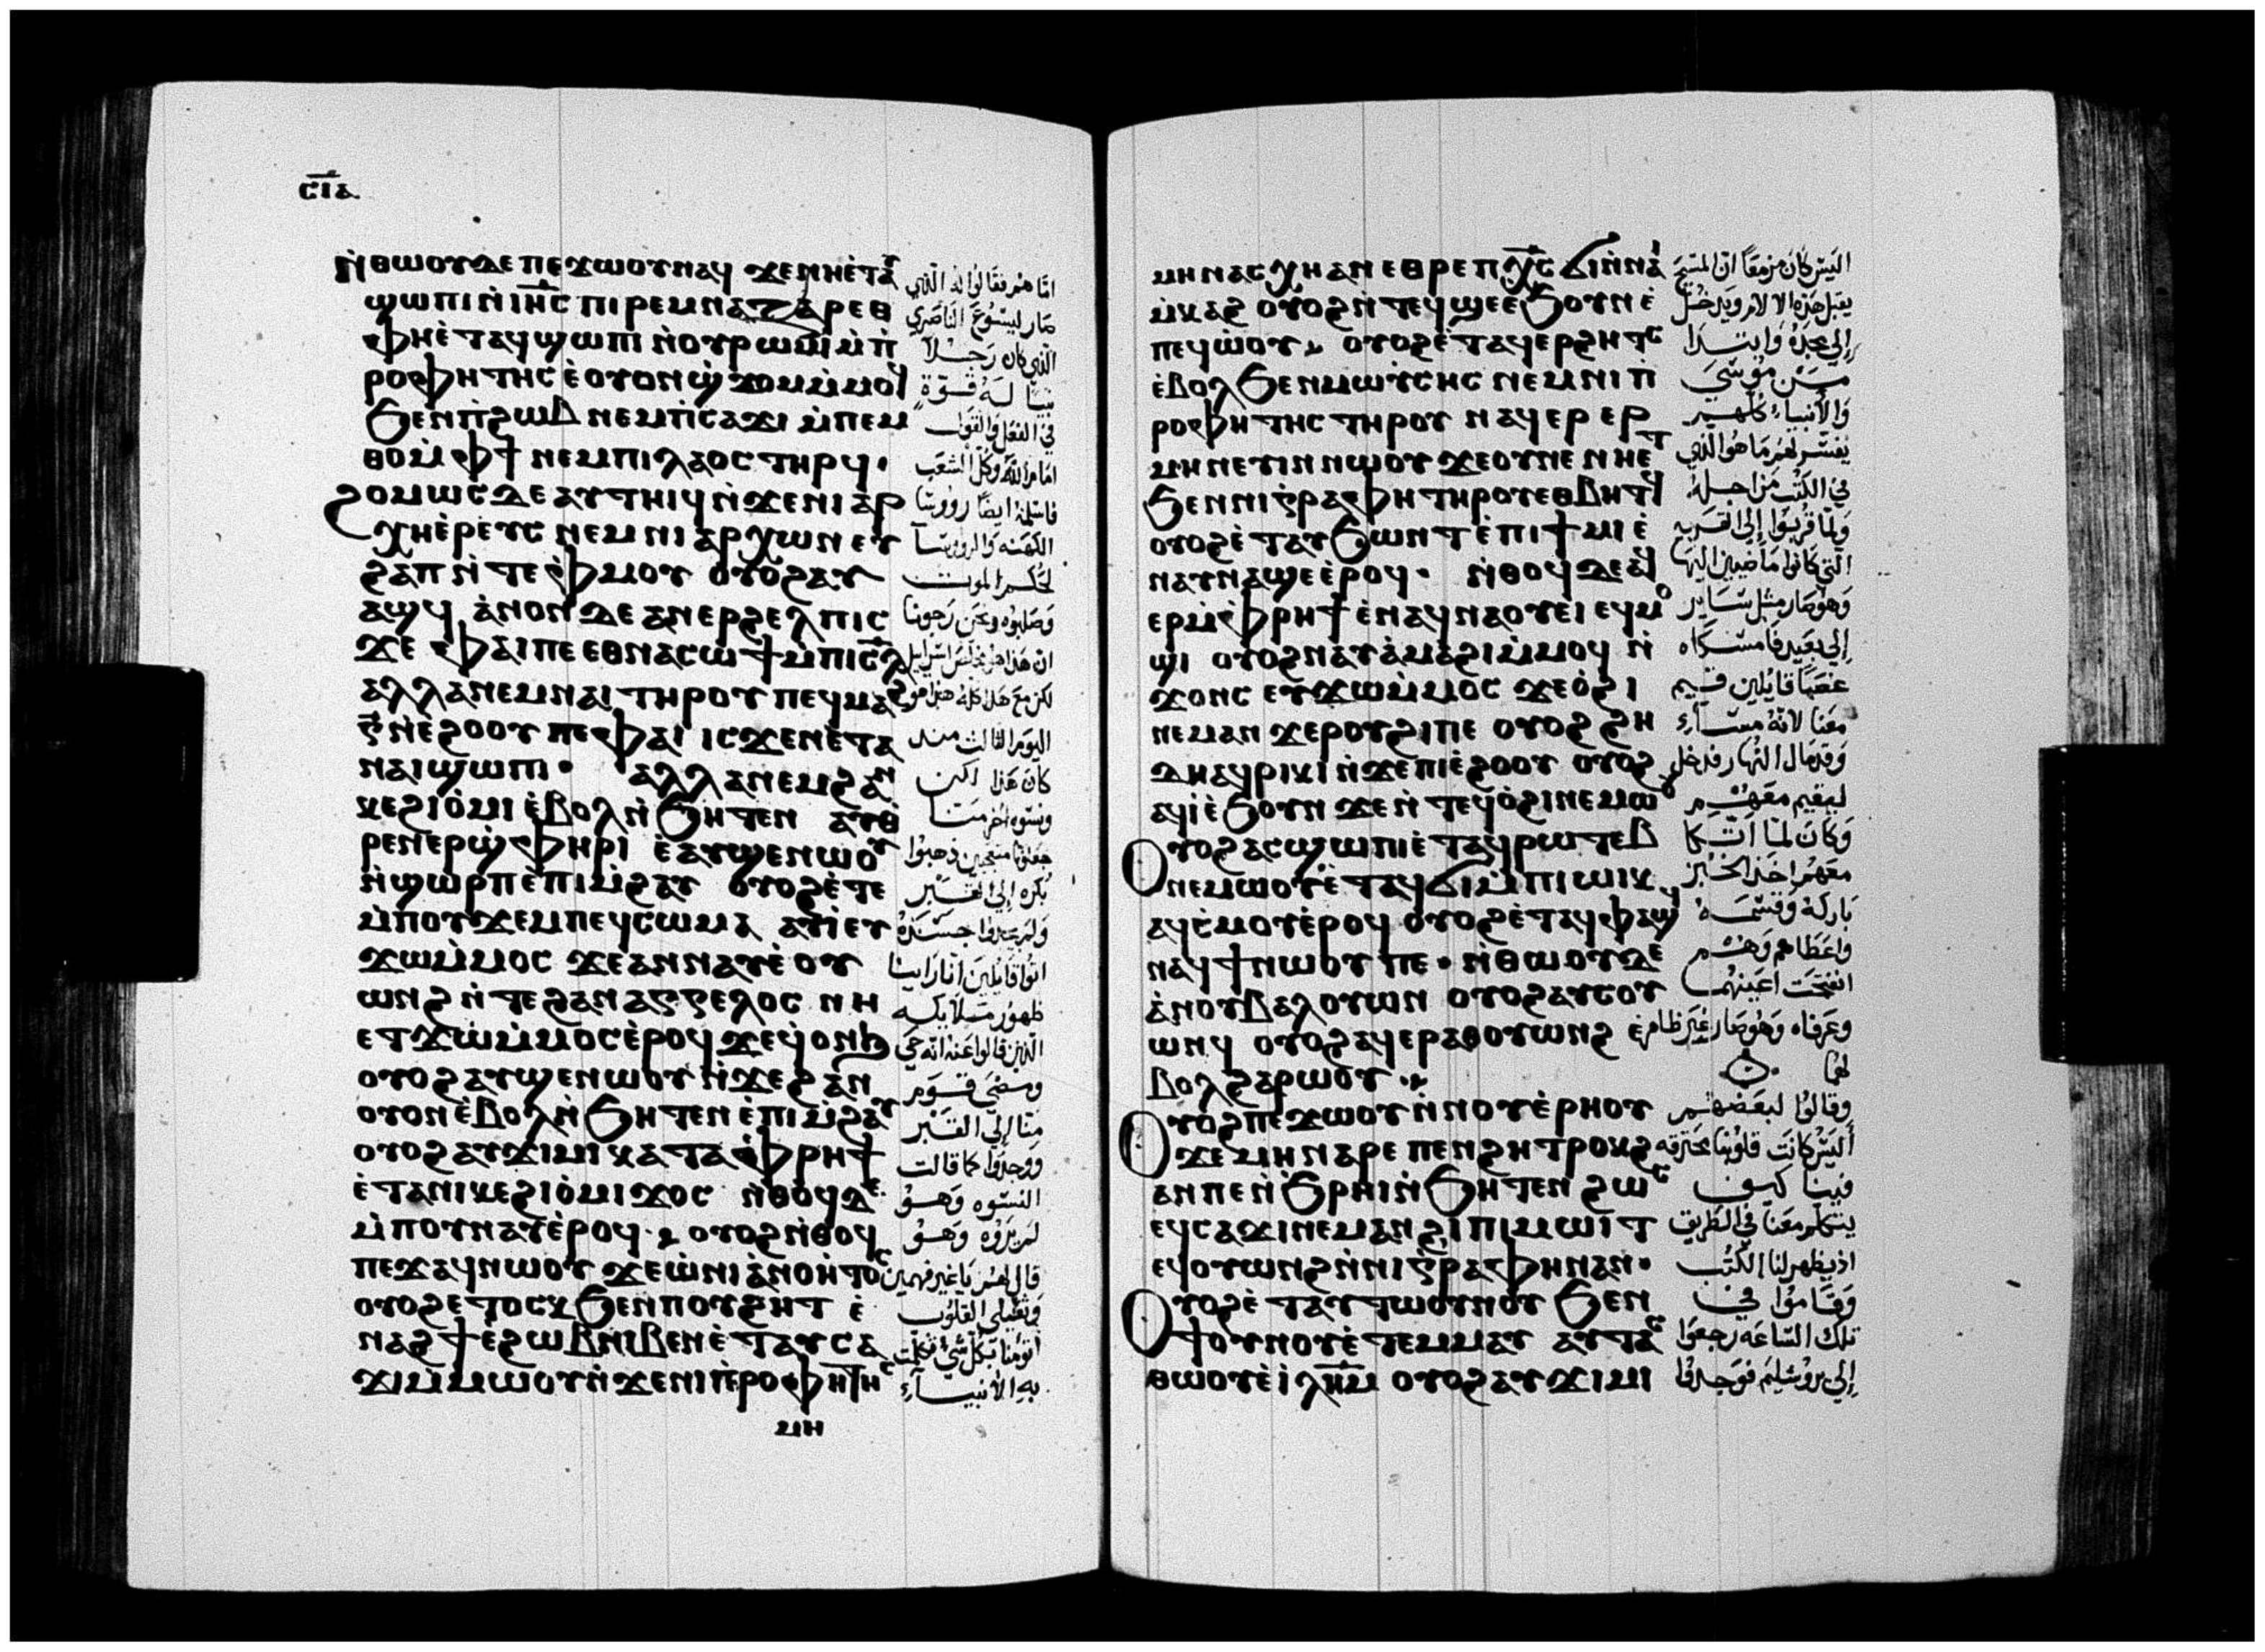 ⲥⲓⲁ
ⲛ̀ⲑⲱⲟⲩⲇⲉ ⲡⲉϫⲱⲟⲩⲛⲁϥ ϫⲉⲛⲏⲉ̀ⲧⲁϥ
ϣⲱⲡⲓⲛ̀ⲓⲏ̅ⲥ ⲡⲓⲣⲉⲙⲛⲁⲍⲁⲣⲉⲑ
ⲫⲏⲉ̀ⲧⲁϥϣⲱⲡⲓ ⲛ̀ⲟⲩⲣⲱⲙⲓ ⲙ̀ⲡ̀
ⲣⲟⲫⲏⲧⲏⲥ ⲉ̀ⲟⲩⲟⲛϣ̀ϫⲟⲙⲙ̀ⲙⲟϥ
ϧⲉⲛⲡ̀ϩⲱⲃ ⲛⲉⲙⲡ̀ⲥⲁϫⲓ ⲙ̀ⲡⲉⲙ
ⲑⲟⲙ̀ⲫϯ ⲛⲉⲙⲡⲓⲗⲁⲟⲥ ⲧⲏⲣϥ.
ϩⲟⲙⲱⲥ ⲇⲉ ⲁⲩⲧⲏⲓϥ ⲛ̀ϫⲉⲛⲓⲁⲣ
ⲭⲏⲉ̀ⲣⲉⲩⲥ ⲛⲉⲙ ⲛⲓⲁⲣⲭⲱⲛ ⲉⲩ
ϩⲁⲡ ⲛ̀ⲧⲉⲫ̀ⲙⲟⲩ ⲟⲩⲟϩⲁⲩ
ⲁϣϥ ⲁ̀ⲛⲟⲛ ⲇⲉ ⲁⲛⲉⲣϩⲉⲗⲡⲓⲥ
ϫⲉ ⲫⲁⲓⲡⲉ ⲉⲑⲛⲁⲥⲱϯⲙ̀ⲡⲓⲥ̅ⲗ
ⲁⲗⲗⲁⲛⲉⲙⲛⲁⲓ ⲧⲏⲣⲟⲩ ⲡⲉϥⲙⲁϩ
ⲅ̅ⲛ̀ⲉϩⲟⲟⲩ ⲡⲉⲫⲁⲓ ⲓⲥϫⲉⲛⲉ̀ⲧⲁ
ⲛⲁⲓϣⲱⲡⲓ. ⲁⲗⲗⲁⲛⲉⲙϩⲁⲛ
ⲕⲉϩⲓⲟ̀ⲙⲓ ⲉ̀ⲃⲟⲗⲛ̀ϧⲏⲧⲉⲛ ⲁⲩⲑ̀
ⲣⲉⲛⲉⲣϣ̀ⲫⲏⲣⲓ ⲉ̀ⲁⲩϣⲉⲛⲱⲟⲩ
ⲛ̀ϣⲱⲣⲡⲉ̀ⲡⲓⲙ̀ϩⲁⲩ ⲟⲩⲟϩⲉ̀ⲧⲉ
ⲙ̀ⲡⲟⲩϫⲉⲙⲡⲉϥⲥⲱⲙⲁ ⲁⲩⲓ̀ⲉⲩ
ϫⲱⲙ̀ⲙⲟⲥ ϫⲉⲁⲛⲛⲁⲩⲉ̀ⲟⲩ
ⲱⲛϩ ⲛ̀ⲧⲉϩⲁⲛⲁⲅⲅⲉⲗⲟⲥ ⲛⲏ
ⲉⲧϫⲱⲙ̀ⲙⲟⲥⲉ̀ⲣⲟϥ ϫⲉϥⲟⲛϧ
ⲟⲩⲟϩⲁⲩϣⲉⲛⲱⲟⲩ ⲛ̀ϫⲉϩⲁⲛ
ⲟⲩⲟⲛⲉ̀ⲃⲟⲗⲛ̀ϧⲏⲧⲉⲛ ⲉ̀ⲡⲓⲙ̀ϩⲁⲩ
ⲟⲩⲟϩⲁⲩϫⲓⲙⲓⲕⲁⲧⲁⲫ̀ⲣⲏϯ
ⲉ̀ⲧⲁⲛⲓⲕⲉϩⲓⲟ̀ⲙⲓϫⲟⲥ ⲛ̀ⲑⲟϥⲇⲉ
ⲙ̀ⲡⲟⲩⲛⲁⲩⲉ̀ⲣⲟϥ. ⲟⲩⲟϩⲛ̀ⲑⲟϥ
ⲡⲉϫⲁϥⲛⲱⲟⲩ ϫⲉⲱ̀ⲛⲓⲁ̀ⲛⲟⲏⲧⲟⲥ
ⲟⲩⲟϩⲉⲧⲟⲥⲕ ϧⲉⲛⲡⲟⲩϩⲏⲧ ⲉ̀
ⲛⲁϩϯⲉ̀ϩⲱⲃⲛⲓⲃⲉⲛⲉ̀ⲧⲁⲩⲥⲁ
ϫⲓⲙ̀ⲙⲱⲟⲩⲛ̀ϫⲉⲛⲓⲡ̀ⲣⲟⲫⲏⲧⲏⲥ
ⲙⲏ
امّا هم فقالوا له الّذي
صار ليسوع الناصري
الذي كان رجلاً
نبيا له قوة
في الفعل والقول
امام الله وكل الشعب
فاسلمه ايضا رووسا
الكهنه والرووسا
لحكم الموت
وصلبوه ونحن رجونا
ان هذا هو مخلص اسراييل
لكن مع هذا كله هذا هو
اليوم الثالث منذ
كان هذا لكن
ونسوه اخر منا
جعلونا متعجبين ذهبوا
بكره إلى القبر
ولم يجدوا جسده
اتوا قايلين اننا راينا
ظهور ملايكه
الّذين قالوا عنه انه حي
ومضى قوم
منا إلى القبر
ووجدوا كما قالت
النسوه وهو
لم يروه وهو
قال لهم يا غير فهمين
وثقيلي القلوب
أتؤمنا بكل شي تكلمت
به الأنبيآء
ⲙⲏⲛⲁⲥⲭⲏⲁⲛ ⲉⲑⲣⲉⲡⲭ̅ⲥ ϭⲓⲛ̀ⲛⲁⲓ̀
ⲙ̀ⲕⲁϩ ⲟⲩⲟϩⲛ̀ⲧⲉϥϣⲉⲉ̀ϧⲟⲩⲛⲉ̀
ⲡⲉϥⲱ̀ⲟⲩ ⲟⲩⲟϩⲉ̀ⲧⲁϥⲉⲣϩⲏⲧⲥ
ⲉ̀ⲃⲟⲗϧⲉⲛⲙⲱⲩ̀ⲥⲏⲥ ⲛⲉⲙⲛⲓⲡ̀
ⲣⲟⲫⲏⲧⲏⲥ ⲧⲏⲣⲟⲩ ⲛⲁϥⲉⲣⲉⲣ
ⲙⲏⲛⲉⲩⲓⲛⲛⲱⲟⲩ ϫⲉⲟⲩⲡⲉⲛⲏⲉⲧ
ϧⲉⲛⲛⲓⲅⲣⲁⲫⲏⲧⲏⲣⲟⲩⲉⲑⲃⲏⲧϥ
ⲟⲩⲟϩⲉ̀ⲧⲁⲩϧⲱⲛⲧⲉ̀ⲡⲓϯⲙⲓⲉ̀
ⲛⲁⲩⲛⲁϣⲉⲉ̀ⲣⲟϥ. ⲛ̀ⲑⲟϥⲇⲉⲁϥ
ⲉⲣⲙ̀ⲫ̀ⲣⲏϯ ⲉ̀ⲛⲁϥⲛⲁⲟⲩⲉⲓ ⲉϥⲙⲟ
ϣⲓ ⲟⲩⲟϩⲛⲁⲩⲁ̀ⲙⲁϩⲓⲙ̀ⲙⲟϥ ⲛ̀
ϫⲟⲛⲥ ⲉⲩϫⲱⲙ̀ⲙⲟⲥ ϫⲉⲟ̀ϩⲓ
ⲛⲉⲙⲁⲛ ϫⲉⲣⲟⲩϩⲓⲡⲉ ⲟⲩⲟϩ ϩⲏ
ⲇⲏⲁϥⲣⲓⲕⲓ ⲛ̀ϫⲉⲡⲓⲉ̀ϩⲟⲟⲩ ⲟⲩⲟϩ
ⲁϥⲓⲉ̀ϧⲟⲩⲛ ϫⲉⲛ̀ⲧⲉϥⲟ̀ϩⲓⲛⲉⲙⲱⲟⲩ
ⲟⲩⲟϩⲁⲥϣⲱⲡⲓⲉ̀ⲧⲁϥⲣⲱⲧⲉⲃ
ⲛⲉⲙⲱⲟⲩⲉ̀ⲧⲁϥϭⲓⲙ̀ⲡⲓⲱⲓⲕ
ⲁϥⲥ̀ⲙⲟⲩⲉ̀ⲣⲟϥ ⲟⲩⲟϩⲉ̀ⲧⲁϥⲫⲁϣϥ
ⲛⲁϥϯⲛⲱⲟⲩ ⲡⲉ. ⲛ̀ⲑⲱⲟⲩⲇⲉ
ⲁ̀ⲛⲟⲩⲃⲁⲗⲟⲩⲱⲛ ⲟⲩⲟϩⲁⲩⲥⲟⲩ
ⲱⲛϥ ⲟⲩⲟϩⲁϥⲉⲣⲁⲑⲟⲩⲱⲛϩ ⲉ̀
ⲃⲟⲗϩⲁⲣⲱⲟⲩ
ⲟⲩⲟϩⲡⲉϫⲱⲟⲩⲛ̀ⲛⲟⲩⲉ̀ⲣⲏⲟⲩ
ϫⲉⲙⲏⲛⲁⲣⲉ ⲡⲉⲛϩⲏⲧⲣⲟⲕϩ
ⲁⲛⲡⲉⲛ̀ϧⲣⲏⲓⲛ̀ϧⲏⲧⲉⲛ ϩⲱⲥ
ⲉϥⲥⲁϫⲓⲛⲉⲙⲁⲛϩⲓⲡⲓⲙⲱⲓⲧ
ⲉϥⲟⲩⲱⲛϩⲛ̀ⲛⲓⲅⲣⲁⲫⲏⲛⲁⲛ.
ⲟⲩⲟϩⲉ̀ⲧⲁⲩⲧⲱⲟⲩⲛⲟⲩ ϧⲉⲛ
ϯⲟⲩⲛⲟⲩⲉ̀ⲧⲉⲙⲙⲁⲩ ⲁⲩⲧⲁⲥ
ⲑⲱⲟⲩⲉ̀ⲓⲗⲏ̅ⲙ ⲟⲩⲟϩⲁⲩϫⲓⲙⲓ
اليس كان مزمعًا انّ المسيح
يقبل هذه الالام ويدخل
إلى مجده وابتدا
من موسى
والأنبياء كلهم
يفسر لهم ما هو الّذي
في الكتب من اجله
ولمّا قربوا إلى القريه
التي كانوا ماضيين اليها
وهو صار مثل ساير
إلى بعيد فامسكاه
غصبًا قايلين قيم
معنا لانه مسآء
وقد مال النهار فدخل
ليقيم معهم
وكان لما اتكا
معهم اخذ الخبز
باركه وقسمه
واعطاهم وهم
انفتحت اعينهما
وعرفاه وهو صار غير ظاهر
لهما
وقالوا لبعضهم
أليس كانت قلوبنا محترقه
فينا كيف
يتكلم معنا في الطريق
اذ يظهر لنا الكتب
وقاموا في
تلك الساعه رجعوا
إلى يروشليم فوجدوا